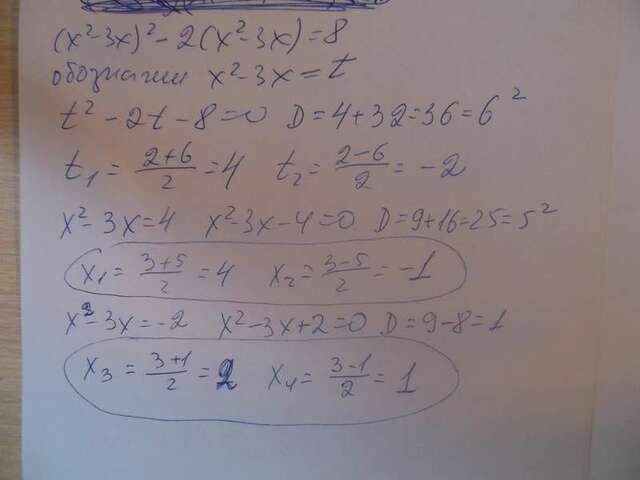 (x²-3x)²-2(x²-3x)=8
обозначим x²-3x=t
t²-2t-8=0 D=4+32=36=6²
t₁=\frac{2+6}{2}=4 t₂=\frac{2-6}{2}=-2
x²-3x=4 x²-3x-4=0 D=9+16=25=5²
x₁=\frac{3+5}{2}=4 x₂=\frac{3-5}{2}=-1
x²-3x=-2 x²-3x+2=0 D=9-8=1
x₃=\frac{3+1}{2}=2 x₄=\frac{3-1}{2}=1